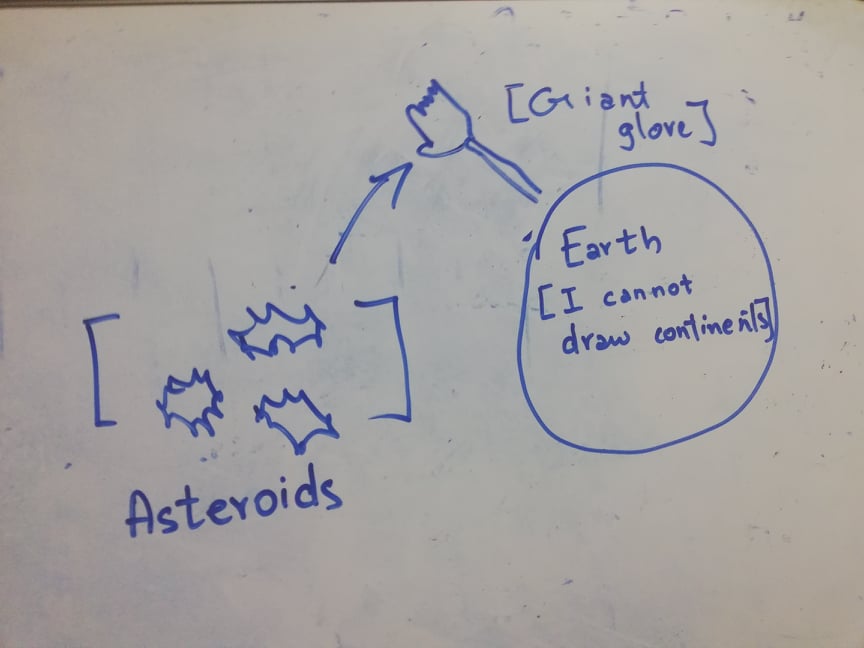 [Giant
glove]
Earth
[I cannot
draw continents]
Asteroids